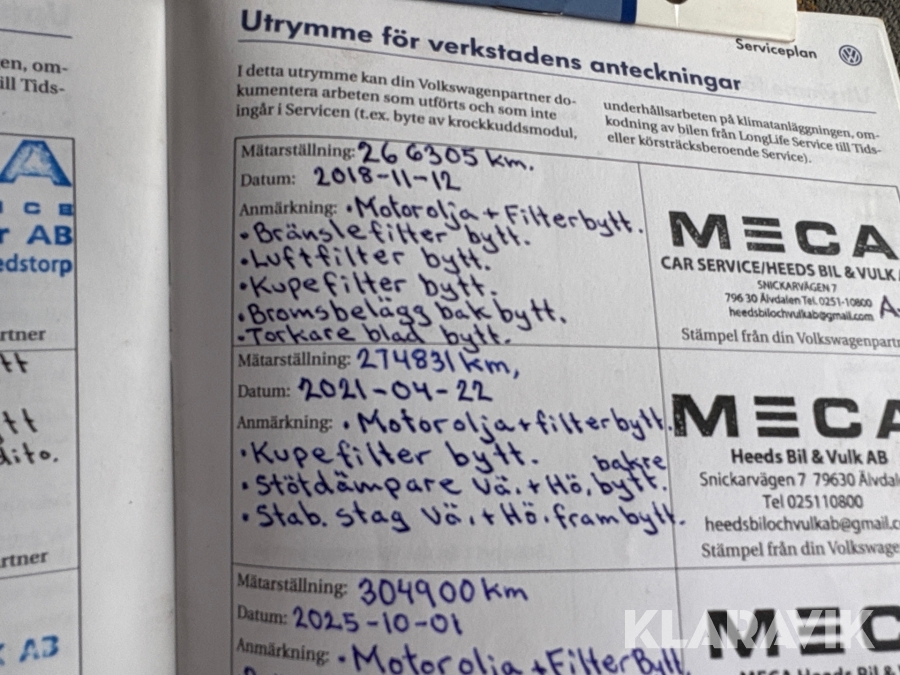 en, om-
ill Tids-
A
I C E
r AB
edstorp
rtner
tt
tt
dito.
rtner
K AB
Serviceplan
Utrymme för verkstadens anteckningar
I detta utrymme kan din Volkswagenpartner do-
kumentera arbeten som utförts och som inte
ingår i Servicen (t.ex. byte av krockkuddsmodul,
underhållsarbeten på klimatanläggningen, om-
kodning av bilen från LongLife Service till Tids-
eller körsträcksberoende Service).
Mätarställning: 266305 km.
Datum: 2018-11-12
Anmärkning: • Motorolja + Filterbytt.
• Bränslefilter bytt.
• Luftfilter bytt.
• Kupefilter bytt.
• Bromsbelägg bak bytt.
• Torkare blad bytt.
MECA
CAR SERVICE/HEEDS BIL & VULK
SNICKARVÄGEN 7
796 30 Älvdalen Tel. 0251-10800
heedsbilochvulkab@gmail.com
Stämpel från din Volkswagenpartn
Mätarställning: 274831 km,
Datum: 2021-04-22
Anmärkning: • Motorolja + filterbytt.
• Kupefilter bytt.
bakre
• Stötdämpare Vä. + Hö. bytt.
• Stab. stag Vä. + Hö. fram bytt.
MECA
Heeds Bil & Vulk AB
Snickarvägen 7 79630 Älvdal
Tel 025110800
heedsbilochvulkab@gmail.c
Stämpel från din Volkswage
Mätarställning: 304900 km
Datum: 2025-10-01
Anmärkning: • Motorolja + FilterBytt
MECA
MECA Heeds Bil &
KLARAVIK